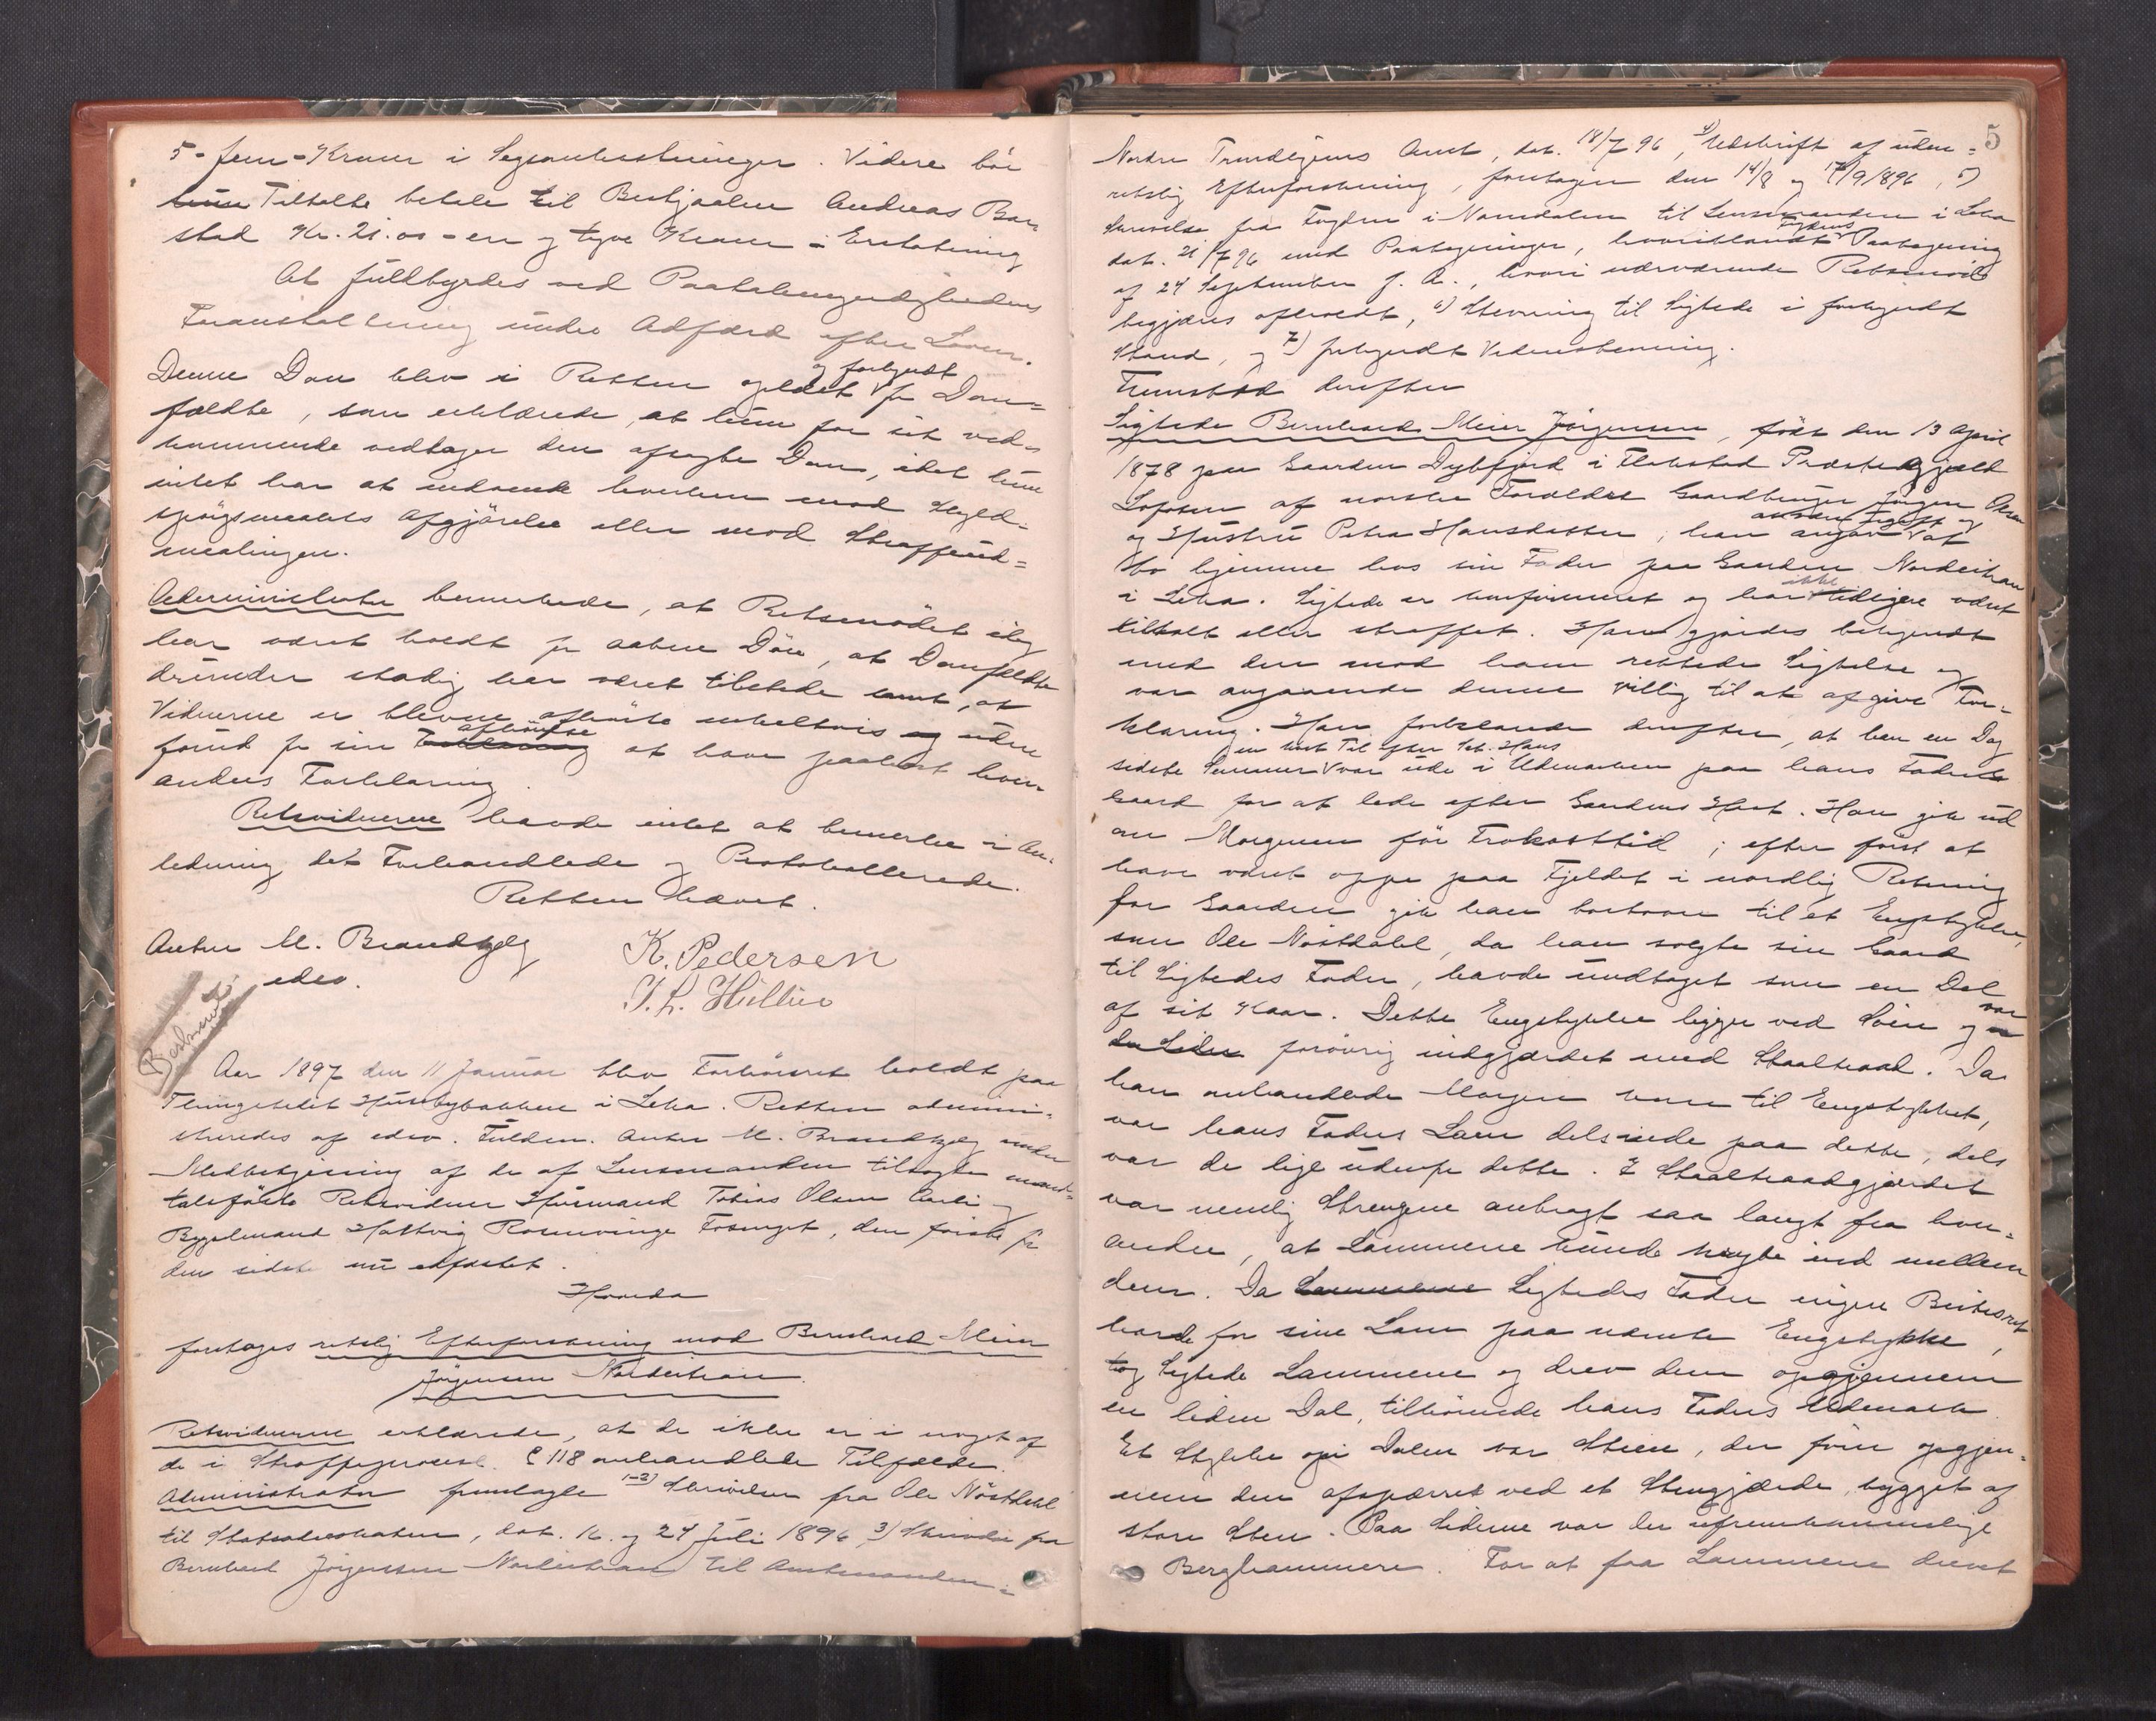 5 - fem - Kroner i Sagsomkostninger. Videre bør
Tiltalte betale til Bestjaalne Andreas Bar-
stad Kr. 21.00 - en og tyve Kroner i Erstatning
At fuldbyrdes ved Paatalemyndighedens
Foranstaltning under Adfærd efter Loven.
Denne Dom blev i Retten oplæst og forkyndt for Dom-
fældte, som erklærede, at hun for sit ved-
kommende vedtager den afsagte Dom, idet hun
intet har at indvende hverken mod Skyld-
spørgsmaalets Afgjørelse eller mod Straffeud-
maalingen.
Administrator bemerkede, at Retsmødet idag
har været holdt for aabne Døre, at Domfældte
stadig har været tilstede samt, at
Vidnerne er blevne afhørte enkeltvis og uden
forud for sin Afhørelse at have paahørt hver-
andres Forklaring.
Retsvidnerne havde intet at bemerke i An-
ledning det Forhandlede og Protokollerede.
Retten hævet.
Anton M. Brandtzæg
edsv.
K. Pedersen
J. L. Hullin
Beskrevet
Aar 1897 den 11 Januar blev Forhørsret holdt paa
Thingstedet Husebybakken i Leka. Retten admini-
streredes af edsv. Fuldm. Anton M. Brandtzæg under
Medbetjening af de af Lensmanden tilsagte mand-
talsførte Retsvidner Husmand Tobias Olsen og
Bygselmand Hartvig Rosenvinge, den første for
den sidste nu edfæstet.
Hvorda
foretoges retslig Efterforskning mod Bernhard Meier
Jørgensen Nordeihran.
Retsvidnerne erklærede, at de ikke er i noget af
de i Straffeprocesl. § 118 omhandlede Tilfælde.
Administrator fremlagde 1-2) Skrivelser fra Ole Nøstdahl
til Statsadvokaten, dat. 16. og 24 Juli 1896, 3) Skrivelse fra
Bernhard Jørgensen Nordeihran til Amtmanden i
5
Nordre Trondhjems Amt, dat. 18/7 96, 4) Udskrift af uden-
retslig Efterforskning, foretagen den 14/8 og 17/9 1896, 5)
Skrivelse fra Fogden i Namdalen til Lensmanden i Leka
dat. 21/7 96 med Paategninger, hvoriblandt Fogdens Paategning
af 24 September f. A., hvori nærværende Retsmøde
begjæres afholdt, 6) Stevning til Sigtede i forkyndt
Stand, og 7) forkyndt Vidnestevning.
Fremstod derefter
Sigtede Bernhard Meier Jørgensen, født den 13 April
1878 paa Gaarden Dybfjord i Flakstad Præstegjæld
Lofoten af norske Forældre Gaardbruger Jørgen Olsen
og Hustru Petra Hansdatter; han angav at være ugift og
bo hjemme hos sin Fader paa Gaarden Nordeihran
i Leka. Sigtede er konfirmeret og har ikke tidligere været
tiltalt eller straffet. Han gjordes bekjendt
med den mod ham rettede Sigtelse og
var angaaende denne villig til at afgive For-
klaring. Han forklarede derefter, at han en Dag
sidste Sommer en kort Tid efter Set. Hans var ude i Udmarken paa hans Faders
Gaard for at lede efter Gaardens Hest. Han gik ud
om Morgenen før Frokosttid; efter først at
have været oppe paa Fjeldet i nordlig Retning
for Gaarden gik han bortover til et Engstykke,
som Ole Nøstdahl, da han solgte sin Gaard
til Sigtedes Fader, havde undtaget som en Del
af sit Kaar. Dette Engstykke ligger ved Søen og var
forøvrig indgjærdet med Staaltraad. Da
han omhandlede Morgen kom til Engstykket,
var hans Faders Lam dels inde paa dette, dels
var de lige udenfor dette. I Staaltraadgjærdet
var nemlig Strengene anbragt saa langt fra hver-
andre, at Lammene kunde krybe ind mellem
dem. Da Sigtedes Fader ingen Beitesret
havde for sine Lam paa nævnte Engstykke,
tog Sigtede Lammene og drev dem opgjennem
en liden Dal, tilhørende hans Faders Udmark.
Et Stykke op i Dalen var Stien, der fører opgjen-
nem den afspærret ved et Stengjærde, bygget af
store Sten. Paa Siderne var der ufremkommelige
Berghammere. For at faa Lammene drevet